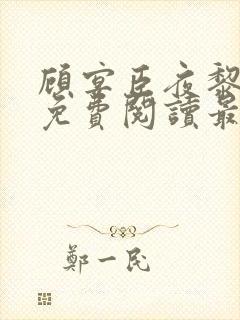 顧宴臣夜黎
免費閱讀最
鄭一民